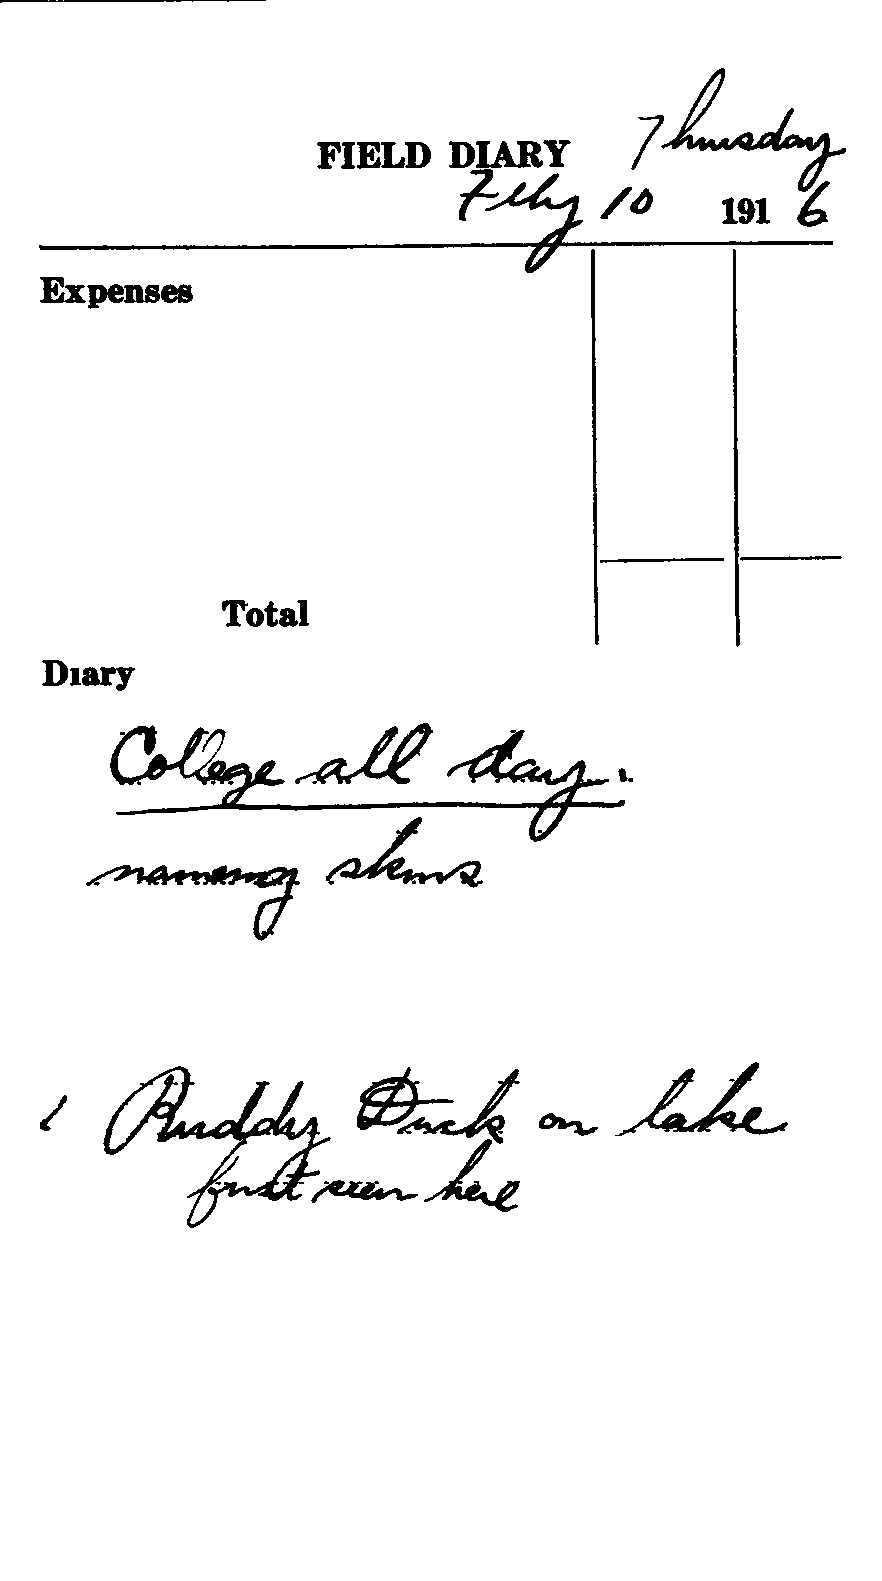 FIELD DIARY Thursday
Feby 10 1916
Expenses
Total
Diary
College all day.
naming skins
1 Ruddy Duck on lake
first seen here